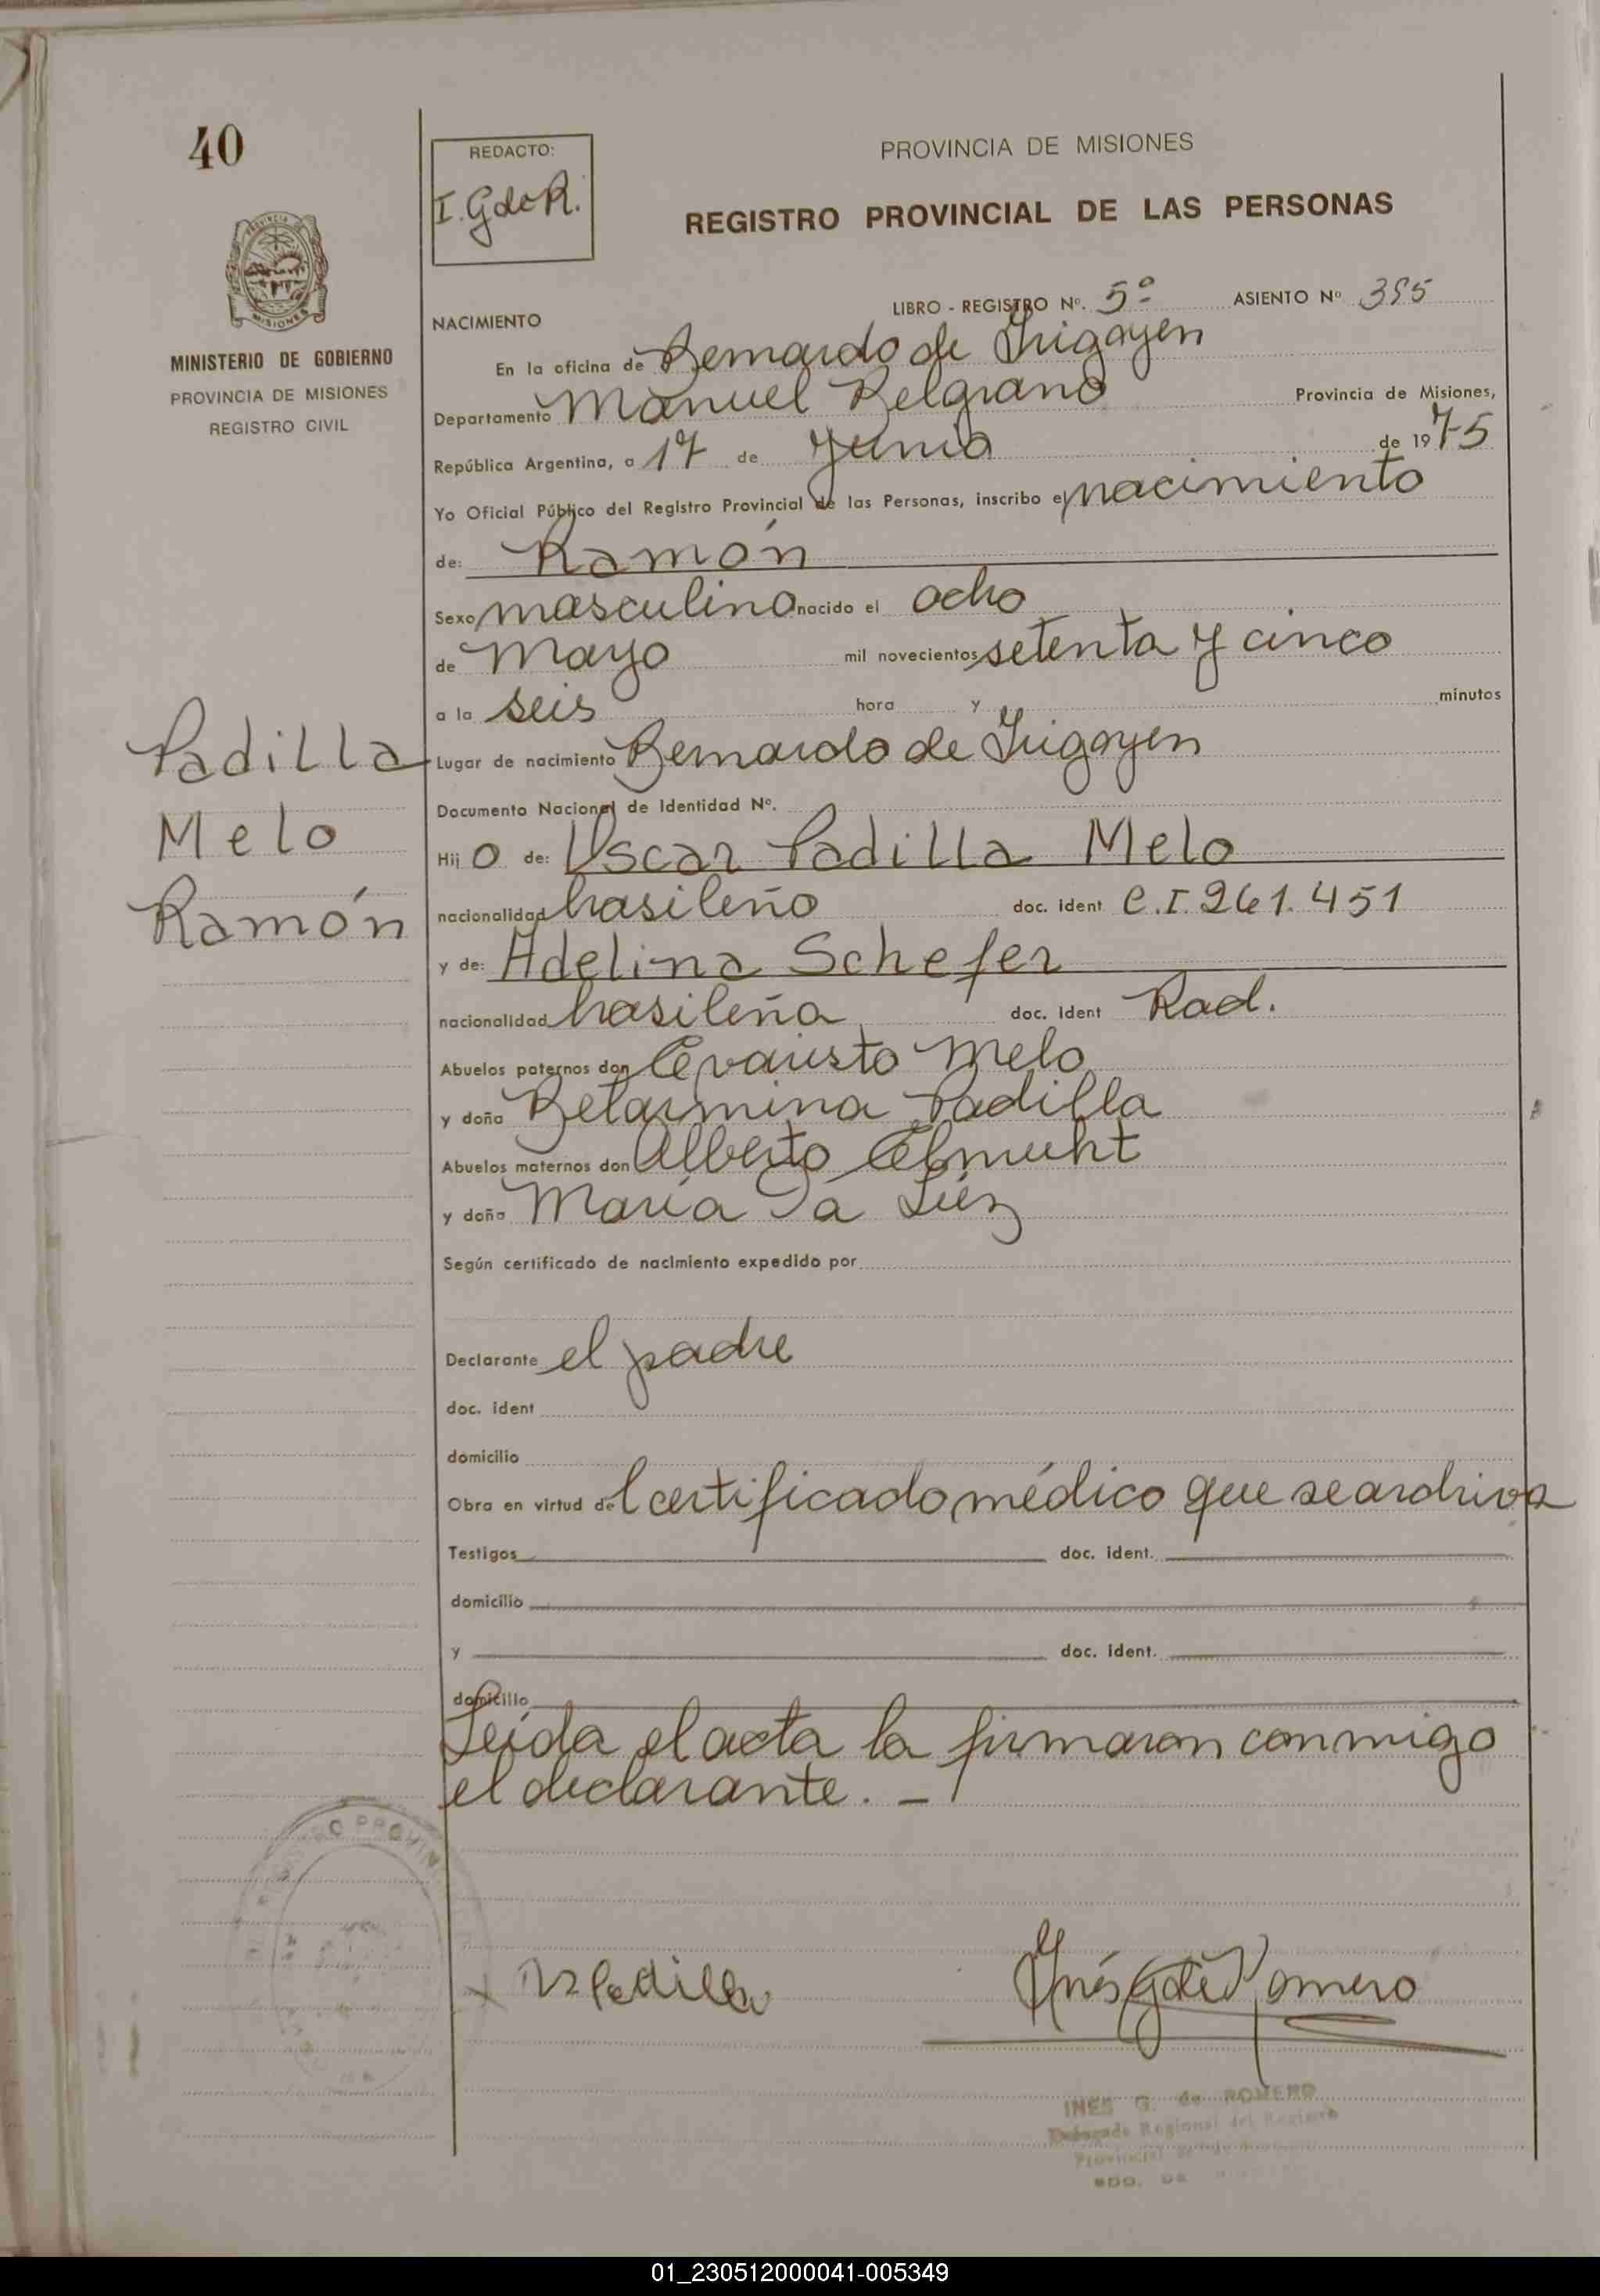 40
REDACTO:
I. G de R.
PROVINCIA DE MISIONES
REGISTRO PROVINCIAL DE LAS PERSONAS
MISIONES
MINISTERIO DE GOBIERNO
PROVINCIA DE MISIONES
REGISTRO CIVIL
LIBRO - REGISTRO Nº. 5º ASIENTO Nº 395
NACIMIENTO
En la oficina de Bernardo de Irigoyen
Departamento Manuel Belgrano Provincia de Misiones,
República Argentina, a 17 de Junio de 1975
Yo Oficial Público del Registro Provincial de las Personas, inscribo el nacimiento
de: Ramón
Sexo masculino nacido el ocho
de Mayo mil novecientos setenta y cinco
a la seis hora y minutos
Padilla
Melo
Ramón
Lugar de nacimiento Bernardo de Irigoyen
Documento Nacional de Identidad Nº.
Hij o de: Oscar Padilla Melo
nacionalidad brasileño doc. ident C.I. 261.451
y de: Adelina Schefer
nacionalidad brasileña doc. ident Rad.
Abuelos paternos don Evaristo Melo
y doña Belarmina Padilla
Abuelos maternos don Alberto
y doña María
Según certificado de nacimiento expedido por
Declarante el padre
doc. ident
domicilio
Obra en virtud del certificado médico que se archiva
Testigos doc. ident.
domicilio
y doc. ident.
domicilio
Leída el acta la firmaron conmigo
el declarante. -
Padilla
Inés G de Romero
INES G. de ROMERO
Delegado Regional del Registro
01_230512000041-005349